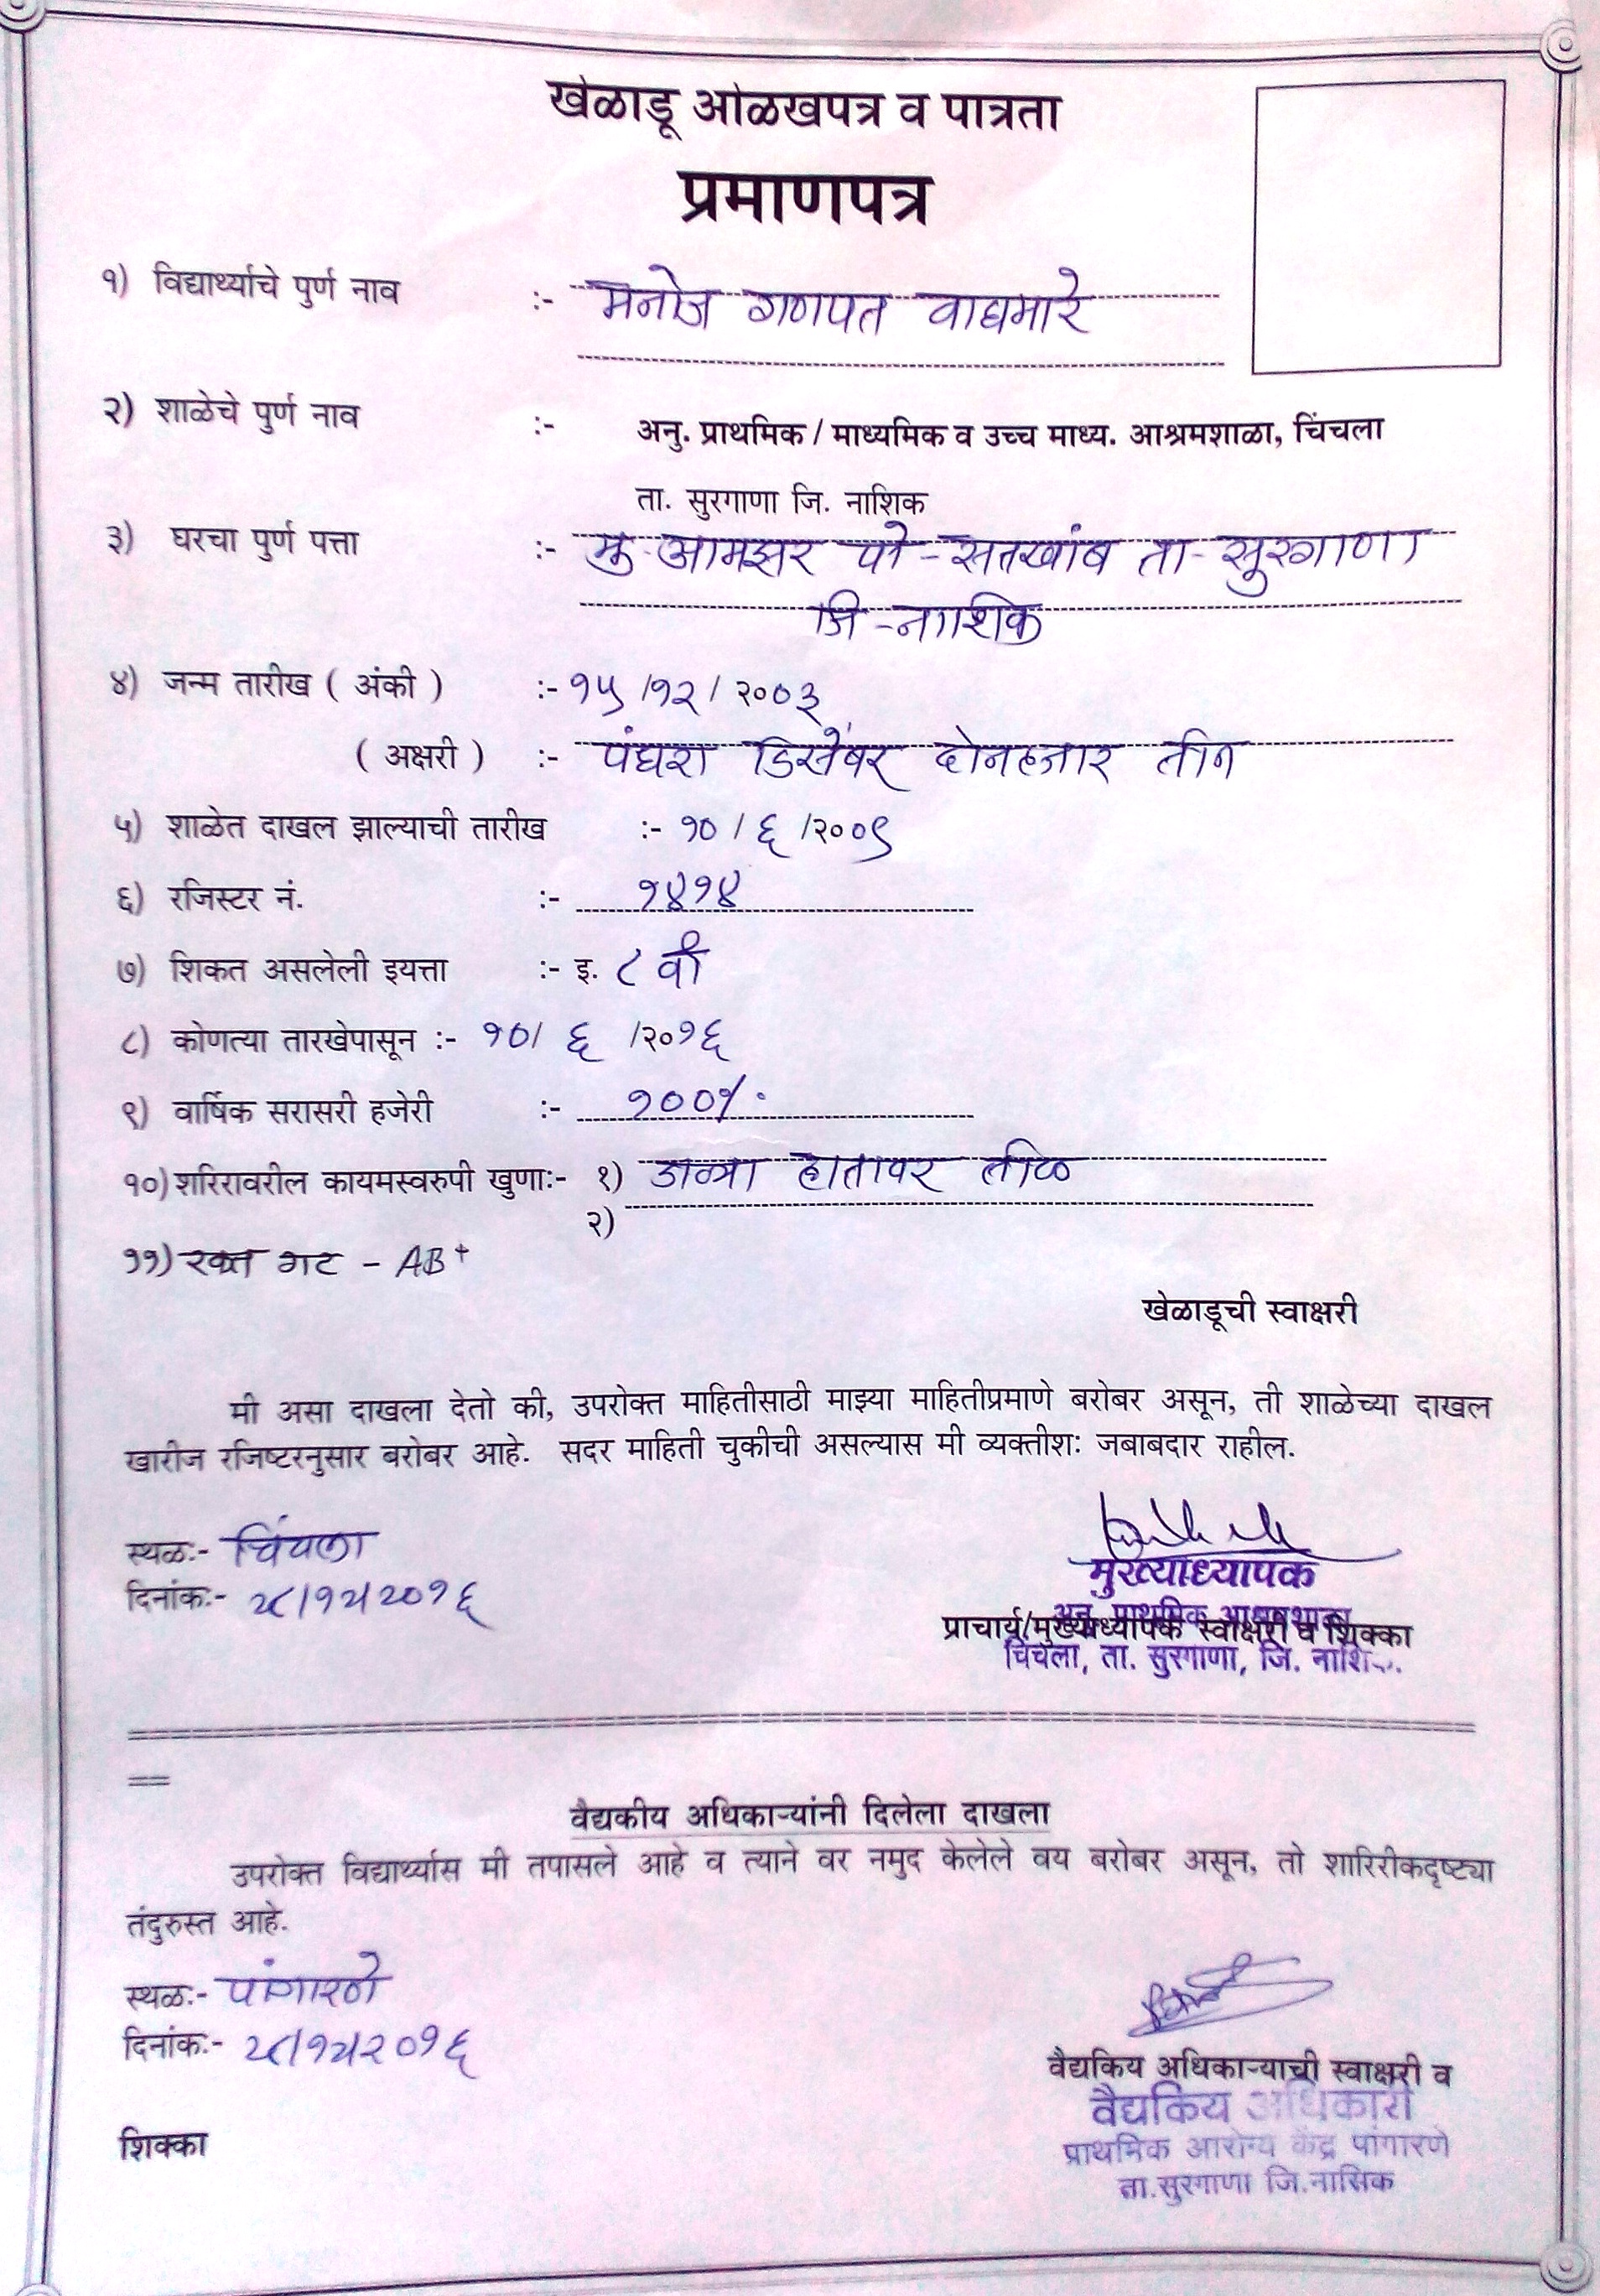 खेळाडू ओळखपत्र व पात्रता
प्रमाणपत्र
१) विद्यार्थ्याचे पुर्ण नाव :- मनोज गणपत वाघमारे
२) शाळेचे पुर्ण नाव :- अनु. प्राथमिक / माध्यमिक व उच्च माध्य. आश्रमशाळा, चिंचला
ता. सुरगाणा जि. नाशिक
३) घरचा पुर्ण पत्ता :- मु-आमझर पो-सतखांब ता-सुरगाणा
जि-नाशिक
४) जन्म तारीख ( अंकी ) :- १५/१२/२००३
( अक्षरी ) :- पंधरा डिसेंबर दोनहजार तीन
५) शाळेत दाखल झाल्याची तारीख :- १०/६/२००९
६) रजिस्टर नं. :- १४१४
७) शिकत असलेली इयत्ता :- इ. ८ वी
८) कोणत्या तारखेपासून :- १०/६/२०१६
९) वार्षिक सरासरी हजेरी :- १००%
१०) शरिरावरील कायमस्वरुपी खुणाः- १) डाव्या हातावर तीळ
२)
११) रक्त गट - AB+
खेळाडूची स्वाक्षरी
मी असा दाखला देतो की, उपरोक्त माहितीसाठी माझ्या माहितीप्रमाणे बरोबर असून, ती शाळेच्या दाखल
खारीज रजिष्टरनुसार बरोबर आहे. सदर माहिती चुकीची असल्यास मी व्यक्तीशः जबाबदार राहील.
स्थळः- चिंचला
दिनांकः- २८/१२/२०१६
मुख्याध्यापक
अनु. प्राथमिक आश्रमशाळा
प्राचार्य/मुख्याध्यापक स्वाक्षरी व शिक्का
चिंचला, ता. सुरगाणा, जि. नाशिक.
वैद्यकीय अधिकाऱ्यांनी दिलेला दाखला
उपरोक्त विद्यार्थ्यास मी तपासले आहे व त्याने वर नमुद केलेले वय बरोबर असून, तो शारिरीकदृष्ट्या
तंदुरुस्त आहे.
स्थळः- पांगारणे
दिनांकः- २८/१२/२०१६
वैद्यकिय अधिकाऱ्याची स्वाक्षरी व
वैद्यकिय अधिकारी
शिक्का
प्राथमिक आरोग्य केंद्र पांगारणे
ता.सुरगाणा जि.नासिक